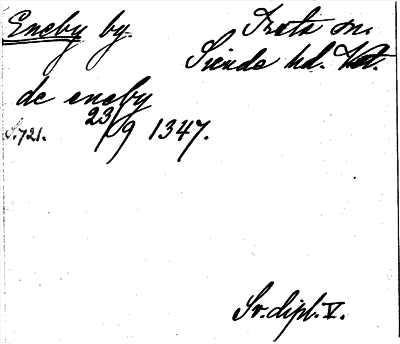 Eneby by. Irsta sn.
Siende hd. Vstm.
de eneby
S. 721. 23/9 1347.
Sv. dipl. V.